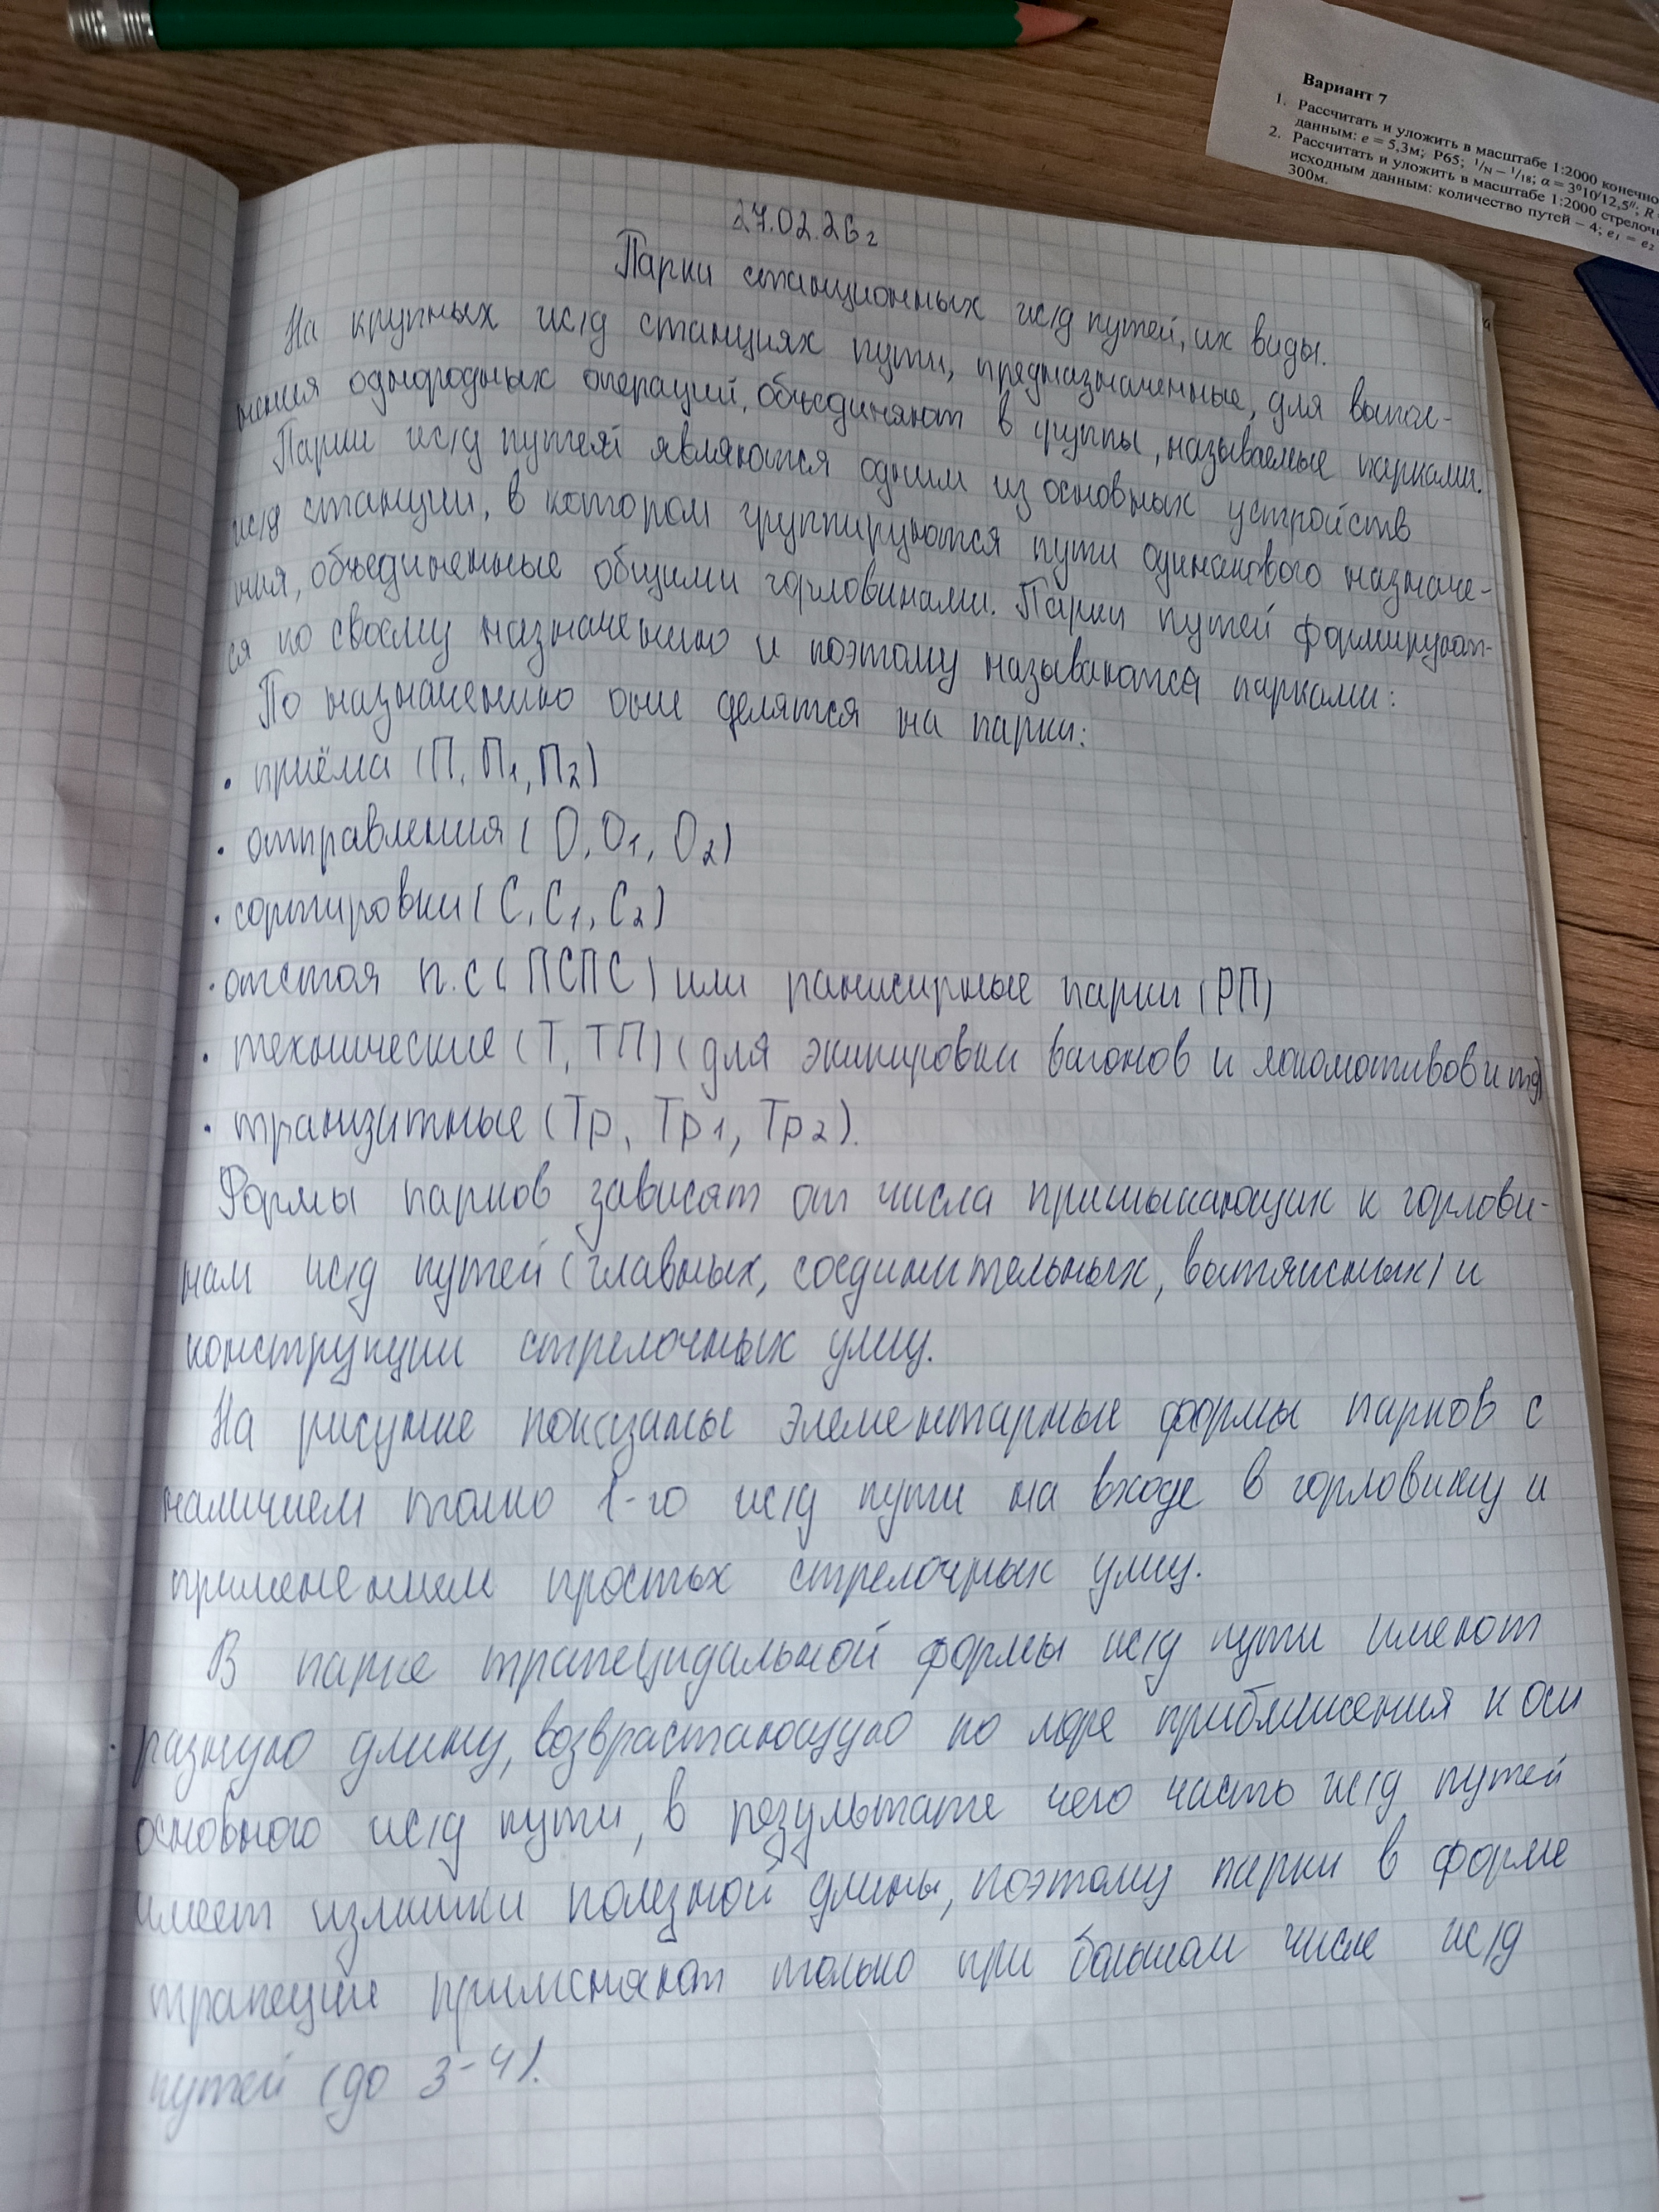 Вариант 7
1. Рассчитать и уложить в масштабе 1:2000 конечно
данным: e = 5,3м; Р65; 1/N – 1/18; α = 3°10'12,5"; R
2. Рассчитать и уложить в масштабе 1:2000 стрелочн
исходным данным: количество путей – 4; e₁ = e₂
300м.
27.02.26г
Парки станционных ж/д путей, их виды.
На крупных ж/д станциях пути, предназначенные, для выпол-
нения однородных операций, объединяют в группы, называемые парками.
Парки ж/д путей являются одним из основных устройств
ж/д станции, в котором группируются пути одинакового назначе-
ния, объединенные общими горловинами. Парки путей формируют-
ся по своему назначению и поэтому называются парками:
По назначению они делятся на парки:
• приёма (П, П1, П2)
• отправления (О, О1, О2)
• сортировки (С, С1, С2)
• отстоя п.с (ПСПС) или ранжирные парки (РП)
• технические (Т, ТП) (для экипировки вагонов и локомотивов и тд)
• транзитные (Тр, Тр1, Тр2).
Формы парков зависят от числа примыкающих к горлови-
нам ж/д путей (главных, соединительных, вытяжных) и
конструкции стрелочных улиц.
На рисунке показаны элементарные формы парков с
наличием толко 1-го ж/д пути на входе в горловину и
применением простых стрелочных улиц.
В парке трапецидальной формы ж/д пути имеют
разную длину, возврастающую по мере приближения к оси
основного ж/д пути, в результате чего часть ж/д путей
имеет излишки полезной длины, поэтому парки в форме
трапеции применяют только при большом числе ж/д
путей (до 3-4).